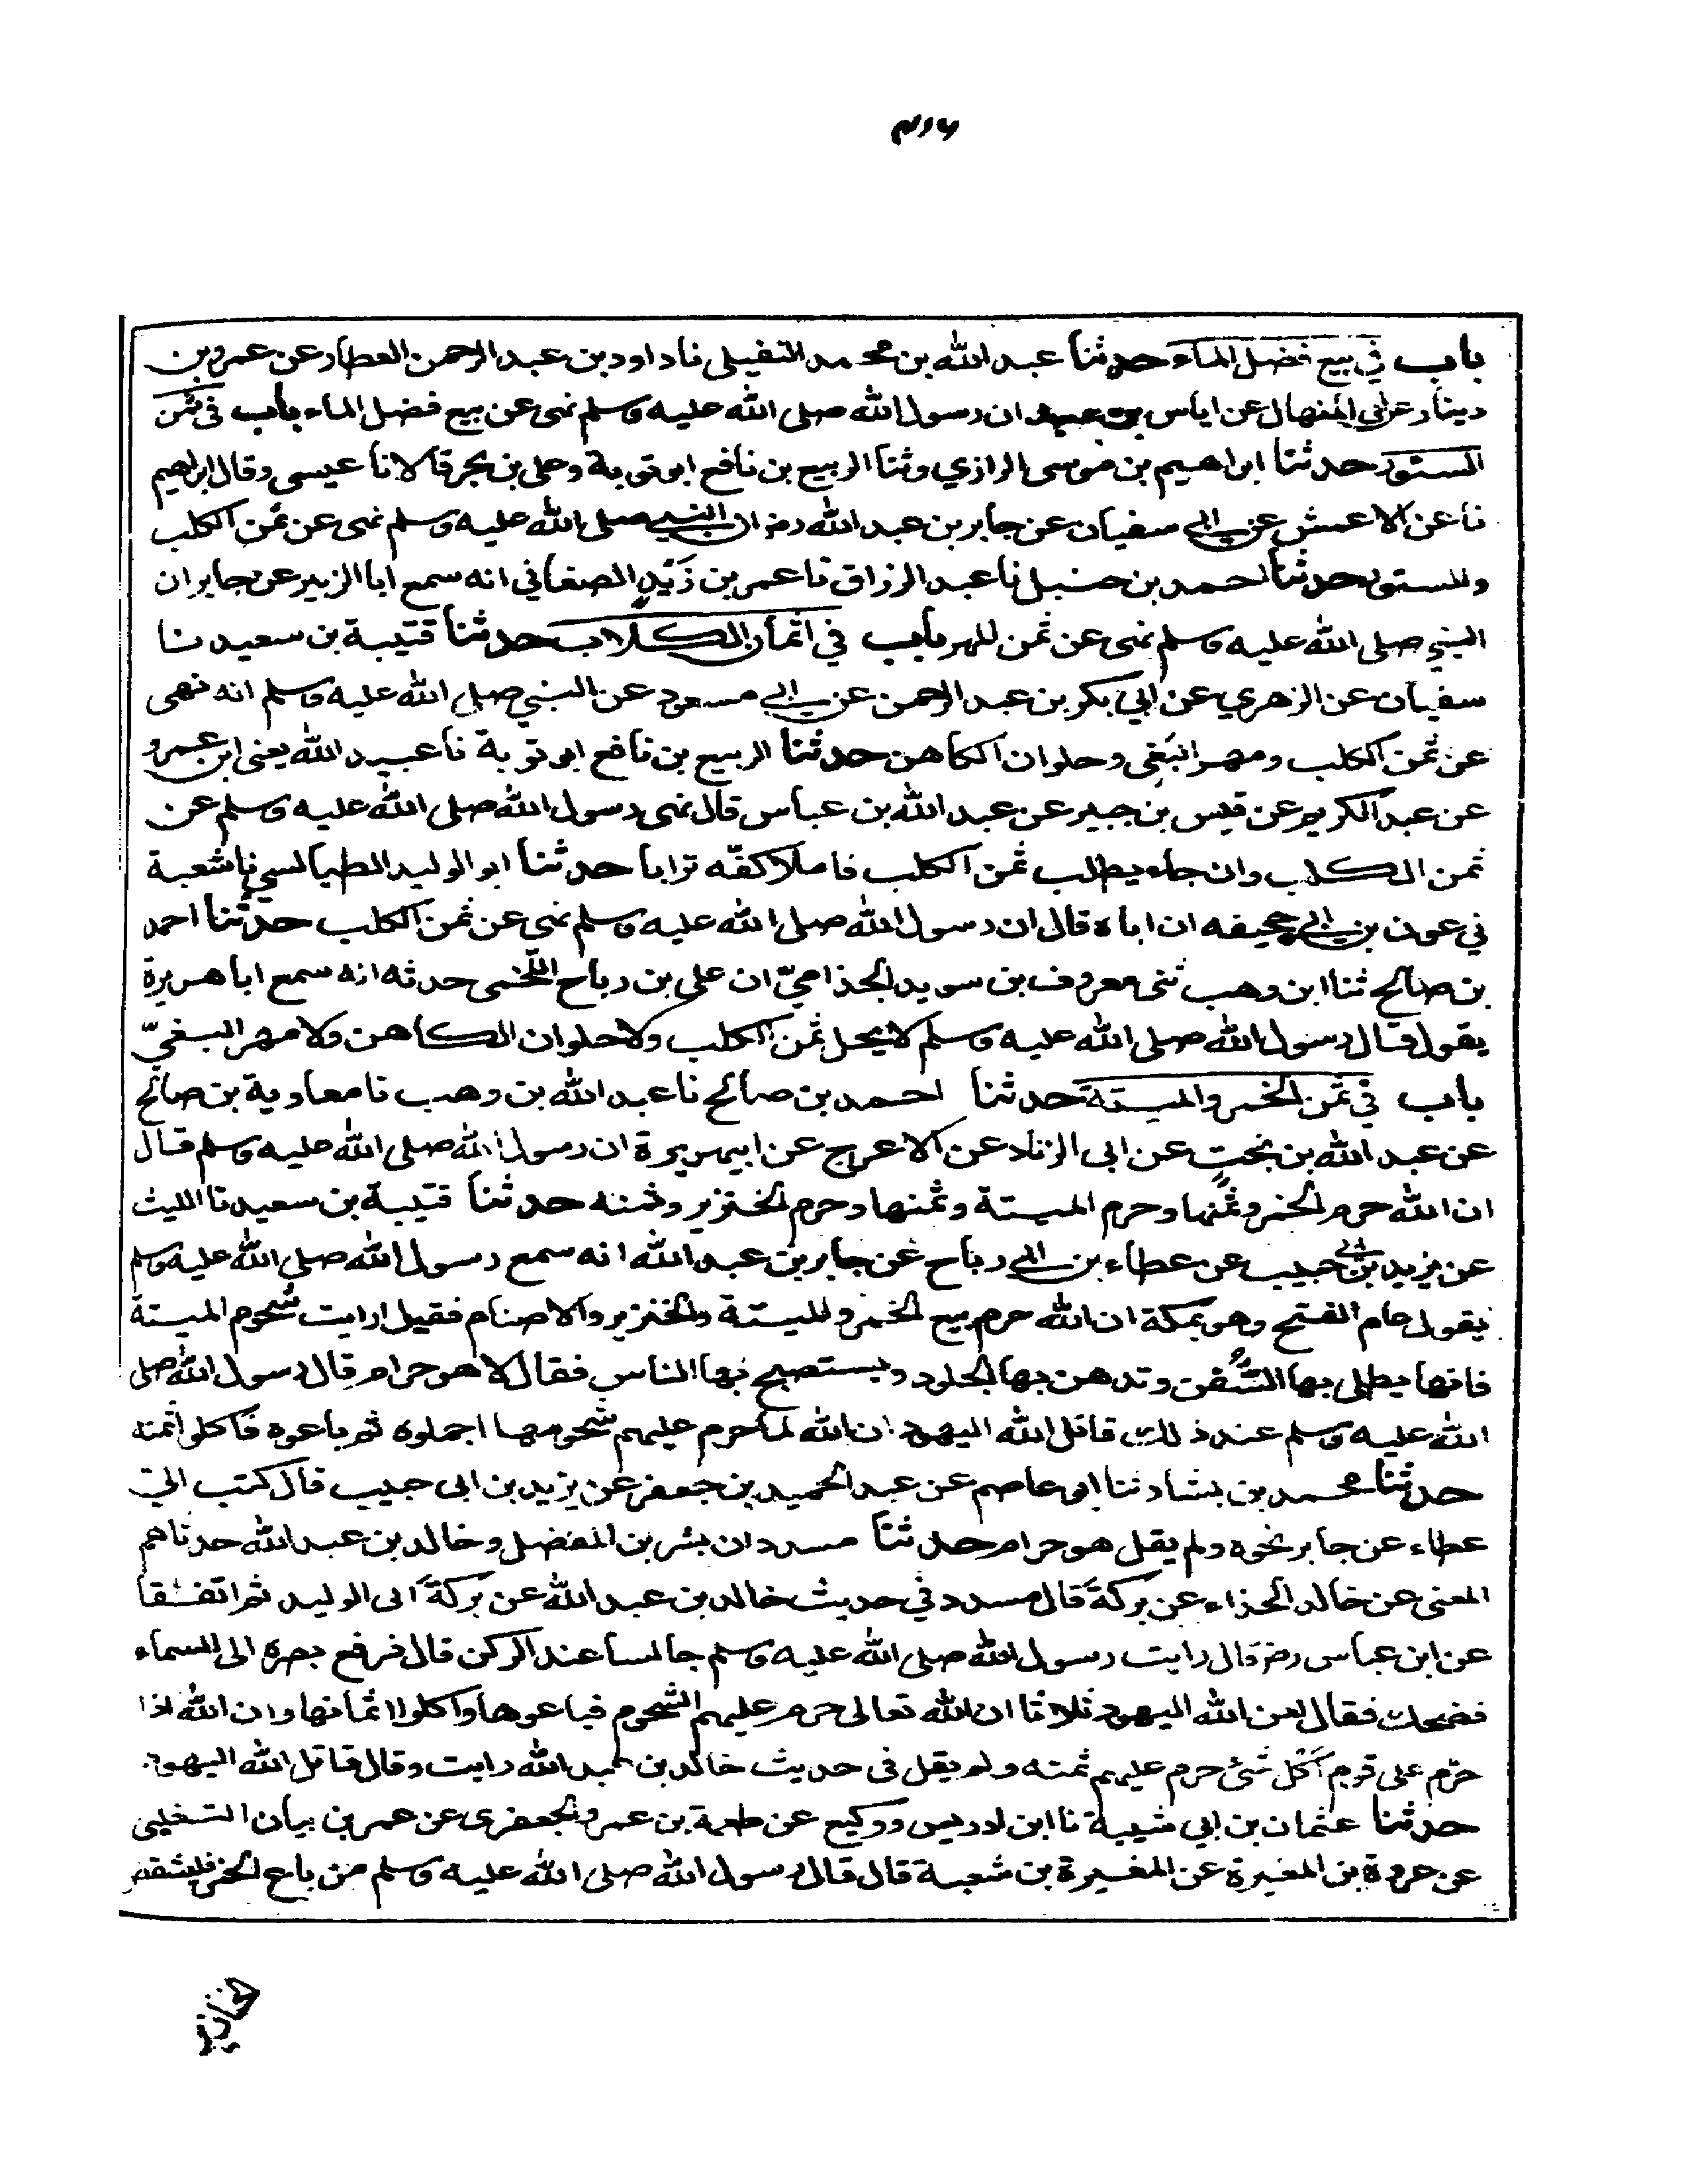 باب في بيع فضل الماء حدثنا عبد الله بن محمد النفيلي نا داود بن عبد الرحمن العطار عن عمرو بن
دينار عن ابي المنهال عن اياس بن عبد ان رسول الله صلى الله عليه وسلم نهى عن بيع فضل الماء باب في ثمن
السنور حدثنا ابراهيم بن موسى الرازي وثنا الربيع بن نافع ابو توبة وعلي بن بحر قالا نا عيسى وقال ابراهيم
نا عن الاعمش عن ابي سفيان عن جابر بن عبد الله رضـ ان النبي صلى الله عليه وسلم نهى عن ثمن الكلب
والسنور حدثنا احمد بن حنبل نا عبد الرزاق نا عمر بن زَيْدٍ الصنعاني انه سمع ابا الزبير عن جابر ان
النبي صلى الله عليه وسلم نهى عن ثمن الهر باب في اثمان الكلاب حدثنا قتيبة بن سعيد نا
سفيان عن الزهري عن ابي بكر بن عبد الرحمن عن ابي مسعود عن النبي صلى الله عليه وسلم انه نهى
عن ثمن الكلب ومهر البَغِي وحلوان الكاهن حدثنا الربيع بن نافع ابو توبة نا عبيد الله يعنى ابن عمرو
عن عبد الكريم عن قيس بن جبير عن عبد الله بن عباس قال نهى رسول الله صلى الله عليه وسلم عن
ثمن الكلب وان جاء يطلب ثمن الكلب فاملا كفّه ترابا حدثنا ابو الوليد الطيالسي نا شعبة
ني عون بن ابي جحيفه ان اباه قال ان رسول الله صلى الله عليه وسلم نهى عن ثمن الكلب حدثنا احمد
بن صالح ثنا ابن وهب ثنى معروف بن سويد الجذاميّ ان على بن رباح اللّخمى حدثه انه سمع ابا هريرة
يقول قال رسول الله صلى الله عليه وسلم لا يحل ثمن الكلب ولا حلوان الكاهن ولا مهر البغيّ
باب في ثمن الخمر والميتة حدثنا احمد بن صالح نا عبد الله بن وهب نا معاوية بن صالح
عن عبد الله بن بختٍ عن ابى الزناد عن الاعرج عن ابيهريرة ان رسول الله صلى الله عليه وسلم قال
ان الله حرم الخمر وثمنها وحرم الميتة وثمنها وحرم الخنزير وثمنه حدثنا قتيبة بن سعيد نا الليث
عن يزيد بن ابي حبيب عن عطاء بن ابي رباح عن جابر بن عبد الله انه سمع رسول الله صلى الله عليه وسلم
يقول عام الفتح وهو بمكة ان الله حرم بيع الخمر والميتة والخنزير والاصنام فقيل ارايت شُحوم الميتة
فانها يطلى بها السُّفن وتدهن بها الجلود ويستصبح بها الناس فقال لا هو حرام قال رسول الله صلى
الله عليه وسلم عند ذلك قاتل الله اليهود ان الله لما حرم عليهم شحومها اجملوه ثم باعوه فاكلوا ثمنه
حدثنا محمد بن بشار ثنا ابو عاصم عن عبد الحميد بن جعفر عن يزيد بن ابى حبيب قال كتب اليّ
عطاء عن جابر نحوه ولم يقل هو حرام حدثنا مسدد ان بشر بن المفضل وخالد بن عبد الله حدثاهم
المعنى عن خالد الحذاء عن بركة قال مسدد في حديث خالد بن عبد الله عن بركة ابى الوليد ثم اتفقا
عن ابن عباس رضـ قال رايت رسول الله صلى الله عليه وسلم جالسا عند الركن قال فرفع بصره الى السماء
فضحك فقال لعن الله اليهود ثلاثا ان الله تعالى حرم عليهم الشحوم فباعوها واكلوا اثمانها وان الله اذا
حرّم على قوم اكل شئ حرم عليهم ثمنه ولم يقل فى حديث خالد بن عبد الله رايت وقال قاتل الله اليهود
حدثنا عثمان بن ابي شيبة نا ابن ادريس ووكيع عن طعمة بن عمرو الجعفرى عن عمر بن بيان التغلبى
عن عروة بن المغيرة عن المغيرة بن شعبة قال قال رسول الله صلى الله عليه وسلم من باع الخمر فليشقص